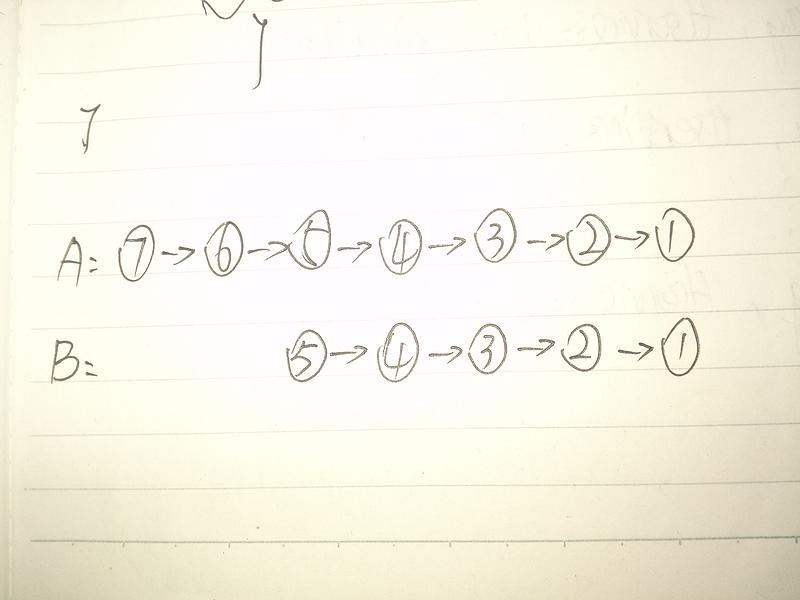 y
A: ⑦→⑥→⑤→④→③→②→①
B: ⑤→④→③→②→①